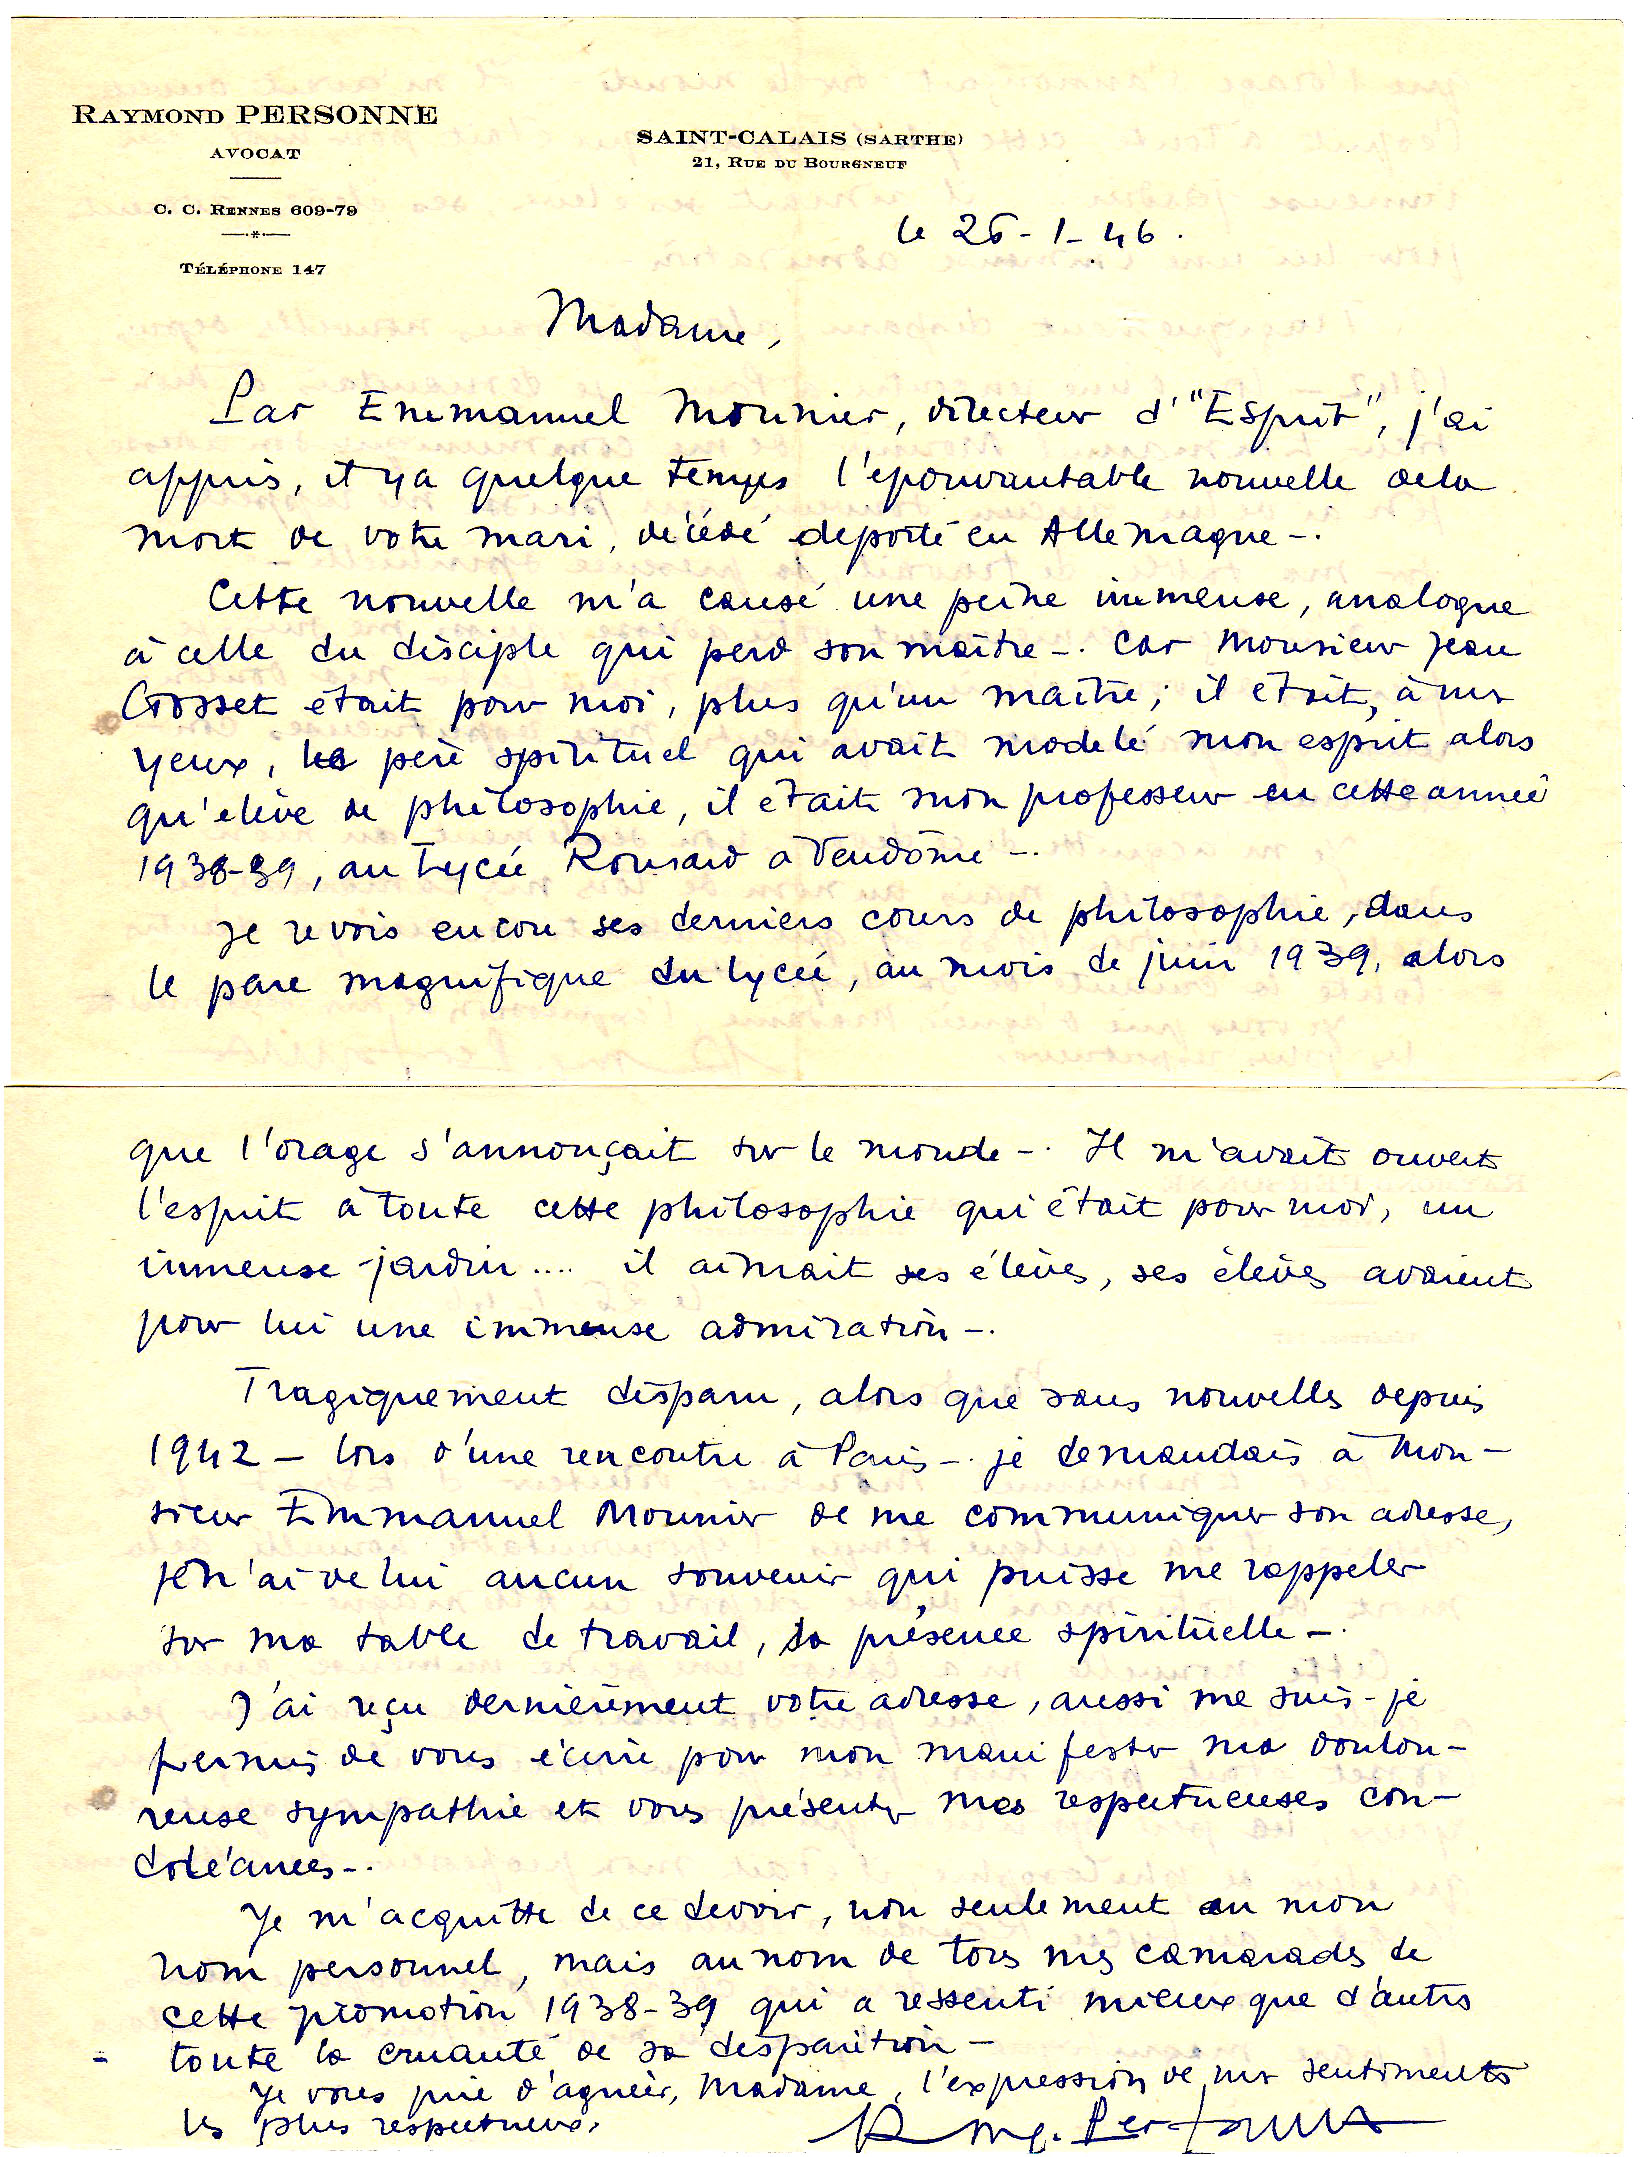 RAYMOND PERSONNE
AVOCAT
C. C. RENNES 609-79
TÉLÉPHONE 147
SAINT-CALAIS (SARTHE)
21, RUE DU BOURGNEUF
le 26-1-46.
Madame,
Par Emmanuel Mounier, directeur d'"Esprit", j'ai
appris, il y a quelque temps l'épouvantable nouvelle de la
mort de votre mari, décédé déporté en Allemagne -.
Cette nouvelle m'a causé une peine immense, analogue
à celle du disciple qui perd son maître -. Car Monsieur Jean
Gosset était pour moi, plus qu'un maître; il était, à mes
yeux, le père spirituel qui avait modelé mon esprit alors
qu'élève de philosophie, il était mon professeur en cette année
1938-39, au Lycée Ronsard à Vendôme -.
Je revois encore ses derniers cours de philosophie, dans
le parc magnifique du lycée, au mois de juin 1939, alors
que l'orage s'annonçait sur le monde -. Il m'avait ouvert
l'esprit à toute cette philosophie qui était pour moi, un
immense jardin.... il aimait ses élèves, ses élèves avaient
pour lui une immense admiration -.
Tragiquement disparu, alors que sans nouvelles depuis
1942 - lors d'une rencontre à Paris -. je demandais à Mon-
sieur Emmanuel Mounier de me communiquer son adresse,
je n'ai de lui aucun souvenir qui puisse me rappeler
sur ma table de travail, sa présence spirituelle -.
J'ai reçu dernièrement votre adresse, aussi me suis-je
permis de vous écrire pour mon manifester ma doulou-
reuse sympathie et vous présenter mes respectueuses con-
doléances -.
Je m'acquitte de ce devoir, non seulement en mon
nom personnel, mais au nom de tous mes camarades de
cette promotion 1938-39 qui a ressenti mieux que d'autres
toute la cruauté de sa disparition -
Je vous prie d'agréer, Madame, l'expression de mes sentiments
les plus respectueux.
Raym. Personne